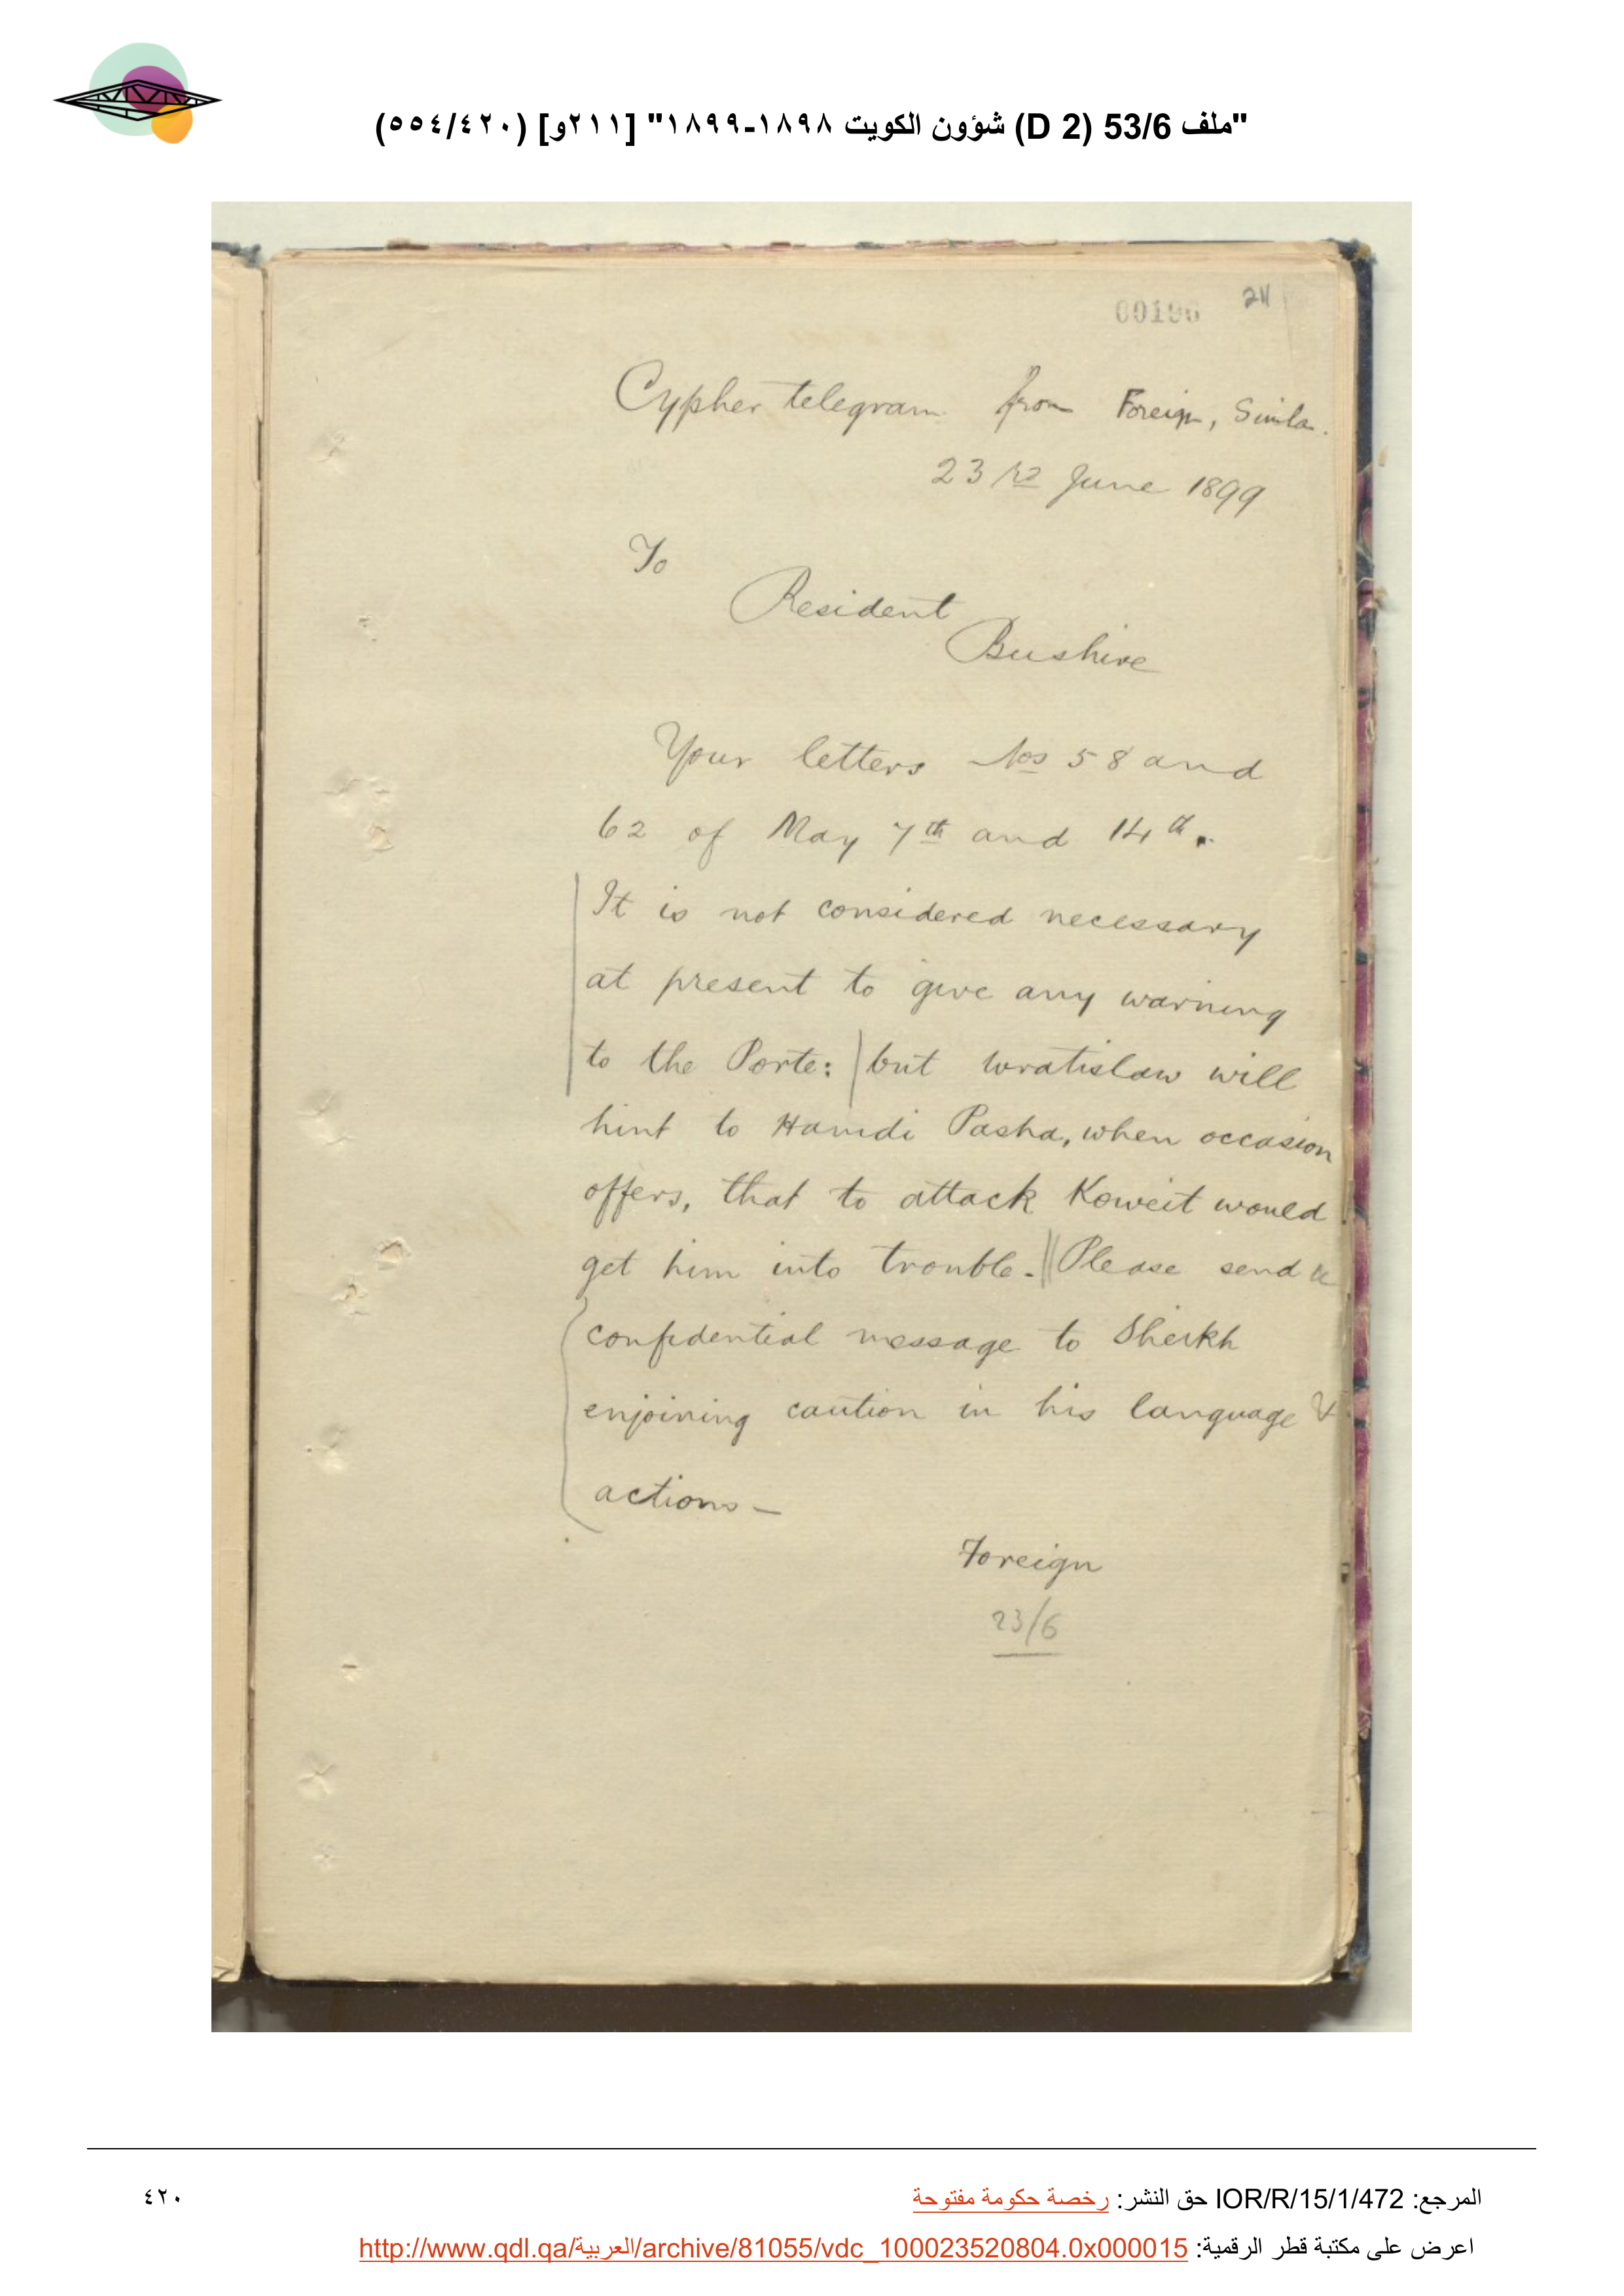 "ملف 53/6 (D 2) شؤون الكويت ١٨٩٨-١٨٩٩" [٢١١و] (٥٥٤/٤٢٠)
00196 211
Cypher telegram from Foreign, Simla.
23rd June 1899
To
Resident
Bushire
Your letters Nos 58 and
62 of May 7th and 14th.
It is not considered necessary
at present to give any warning
to the Porte: but Wratislaw will
hint to Hamdi Pasha, when occasion
offers, that to attack Koweit would
get him into trouble. Please send a
confidential message to Sheikh
enjoining caution in his language &
actions –
Foreign
23/6
المرجع: IOR/R/15/1/472 حق النشر: رخصة حكومة مفتوحة
٤٢٠
اعرض على مكتبة قطر الرقمية: http://www.qdl.qa/العربية/archive/81055/vdc_100023520804.0x000015